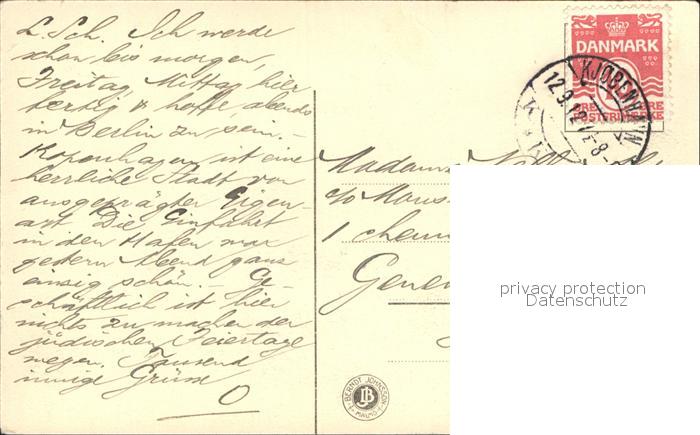 L. Sch. Ich werde
schon bis morgen,
Freitag, Mittag, hier
fertig & hoffe, abends
in Berlin zu sein. -
Kopenhagen ist eine
herrliche Stadt von
ausgeprägter Eigen-
art. Die Einfahrt
in den Hafen war
gestern Abend ganz
einzig schön. - Ge-
schäftlich ist hier
nichts zu machen der
jüdischen Feiertage
wegen. Tausend
innige Grüsse
O
DANMARK
POSTFRIMÆRKE
KJØBENHAVN
12.9.
Madame
c/o Mons
1 chemi
Gene
privacy protection
Datenschutz
BERNDT JOHNSSON
MALMÖ